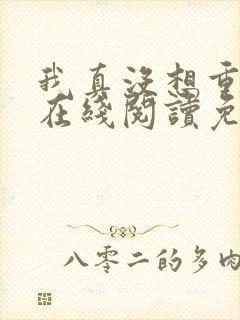 我真没想重
在綫閱讀免
八零二的多肉